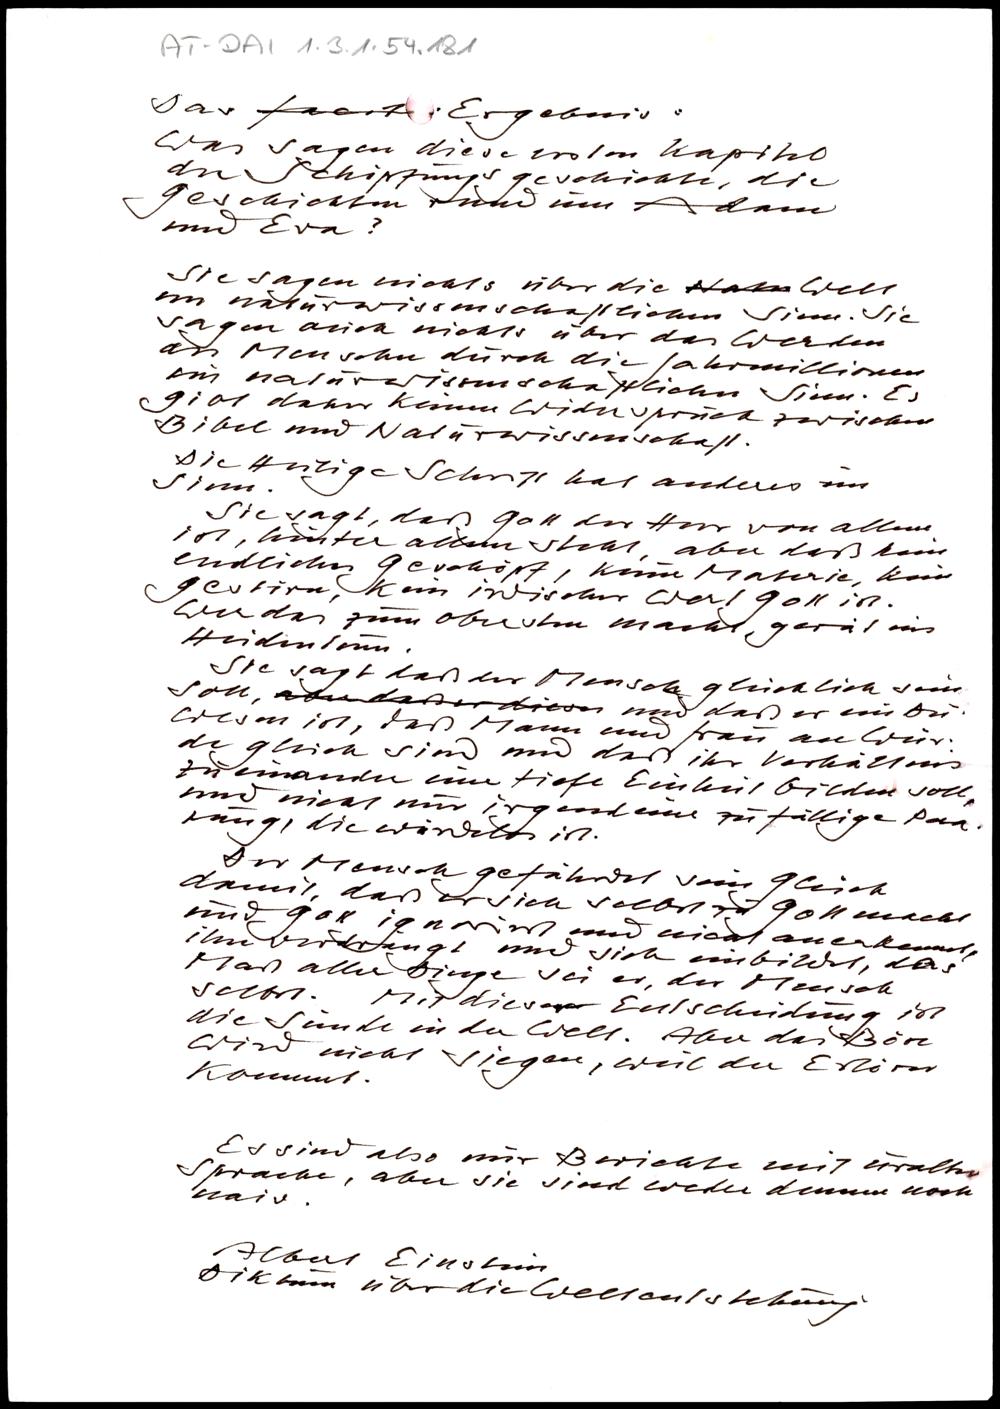 AT-DAI 1.3.1.54.181
Das facit: Ergebnis:
Was sagen diese ersten Kapitel
der Schöpfungsgeschichte, die
Geschichten rund um Adam
und Eva?
Sie sagen nichts über die Welt
im naturwissenschaftlichen Sinn. Sie
sagen auch nichts über das Werden
des Menschen durch die Jahrmillionen
im naturwissenschaftlichen Sinn. Es
gibt daher keinen Widerspruch zwischen
Bibel und Naturwissenschaft.
Die Heilige Schrift hat anderes im
Sinn.
Sie sagt, daß Gott der Herr von allem
ist, hinter allem steht, aber daß kein
endliches Geschöpf, keine Materie, kein
Gestirn, kein irdischer Wert Gott ist.
Wer das zum obersten macht, gerät ins
Heidentum.
Sie sagt daß der Mensch glücklich sein
soll, aber daß er dieses und daß er ein Du-
Wesen ist, daß Mann und Frau an Wür-
de gleich sind und daß ihr Verhältnis
zueinander eine tiefe Einheit bilden soll,
und nicht nur irgendeine zufällige Paa-
rung, die würdelos ist.
Der Mensch gefährdet sein Glück
damit, daß er sich selbst zu Gott macht
und Gott ignoriert und nicht anerkennt,
ihn verdrängt und sich einbildet, das
Maß aller Dinge sei er, der Mensch
selbst. Mit dieser Entscheidung ist
die Sünde in der Welt. Aber das Böse
wird nicht siegen, weil der Erlöser
kommt.
Es sind also nur Berichte mit uralter
Sprache, aber sie sind weder dumm noch
naiv.
Albert Einstein
Diktum über die Weltentstehung